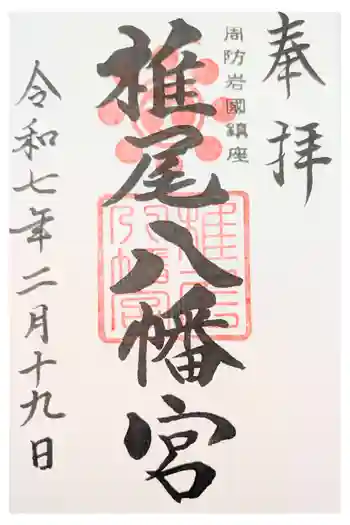 奉拝
周防岩國鎮座
椎尾八幡宮
椎尾八幡宮
令和七年二月十九日